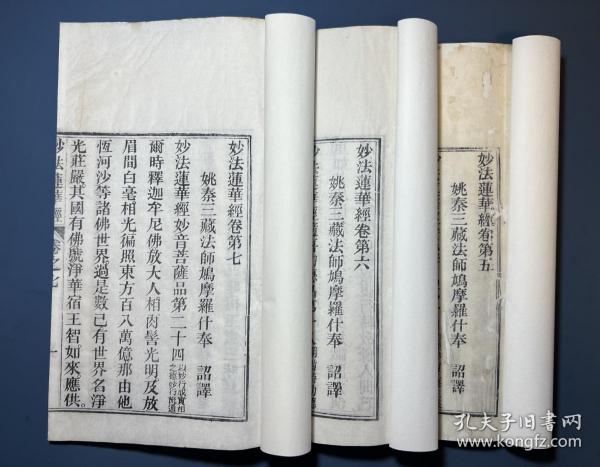 妙法蓮華經卷第七
姚秦三藏法師鳩摩羅什奉　詔譯
妙法蓮華經妙音菩薩品第二十四
爾時釋迦牟尼佛放大人相肉髻光明及放
眉間白毫相光徧照東方百八萬億那由他
恆河沙等諸佛世界過是數已有世界名淨
光莊嚴其國有佛號淨華宿王智。如來。應供。
妙法蓮華經
卷之七
一
妙法蓮華經卷第六
姚秦三藏法師鳩摩羅什奉　詔譯
妙法蓮華經卷第五
姚秦三藏法師鳩摩羅什奉　詔譯
孔夫子旧书网
www.kongfz.com